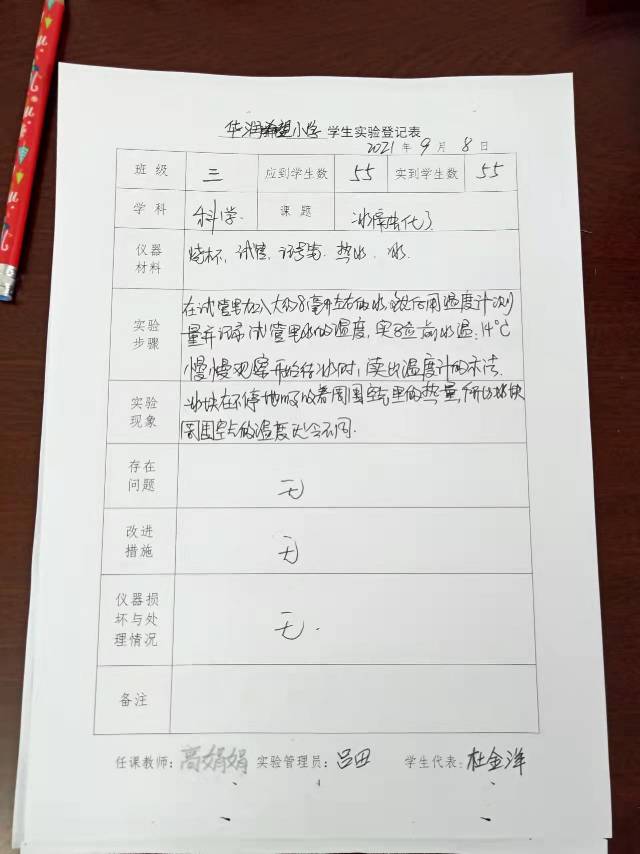 华润希望小学 学生实验登记表
2021 年 9 月 8 日
班级 三 应到学生数 55 实到学生数 55
学科 科学 课题 冰融化了
仪器材料 烧杯、试管、记号笔、热水、冰
实验步骤 在试管里加入大约8毫升左右的水,然后用温度计测
量并记录试管里水的温度,
水温:14℃
慢慢观察开始结冰时,读出温度计的示法.
实验现象 冰块在不停地吸收着周围空气里的热量,所以冰块
周围空气的温度也会不同.
存在问题 无
改进措施 无
仪器损坏与处理情况 无.
备注
任课教师:高娟娟 实验管理员:吕田 学生代表:杜金洋
4